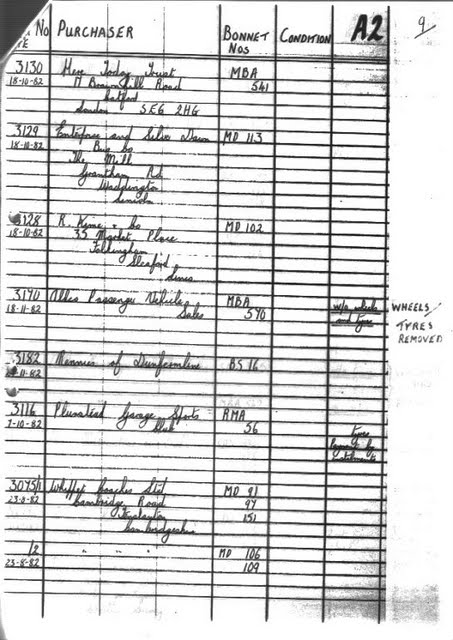 No PURCHASER BONNET NOS CONDITION A2 9
3130 Here Today Trust MBA
18-10-82 17 Road 541
Catford
London SE6 2HG
3129 Enterprise and Silver Dawn MD 113
18-10-82 Bus Co
The Mill
Grantham Rd
Waddington
Lincoln
3128 R. Kime & Co MD 102
18-10-82 35 Market Place
Folkingham
Sleaford
Lincs
3170 Allied Passenger Vehicle MBA w/o wheels WHEELS/
18-11-82 Sales 590 and tyres TYRES
REMOVED
3182 of Dunfermline BS 16
11-82
3116 Plumstead Garage Sports RMA
7-10-82 Club 56
Paying by
instalments
3075/1 Whippet Coaches Ltd MD 91
23-8-82 Cambridge Road 97
Fenstanton 151
Cambridgeshire
/2 " " " MD 106
23-8-82 109